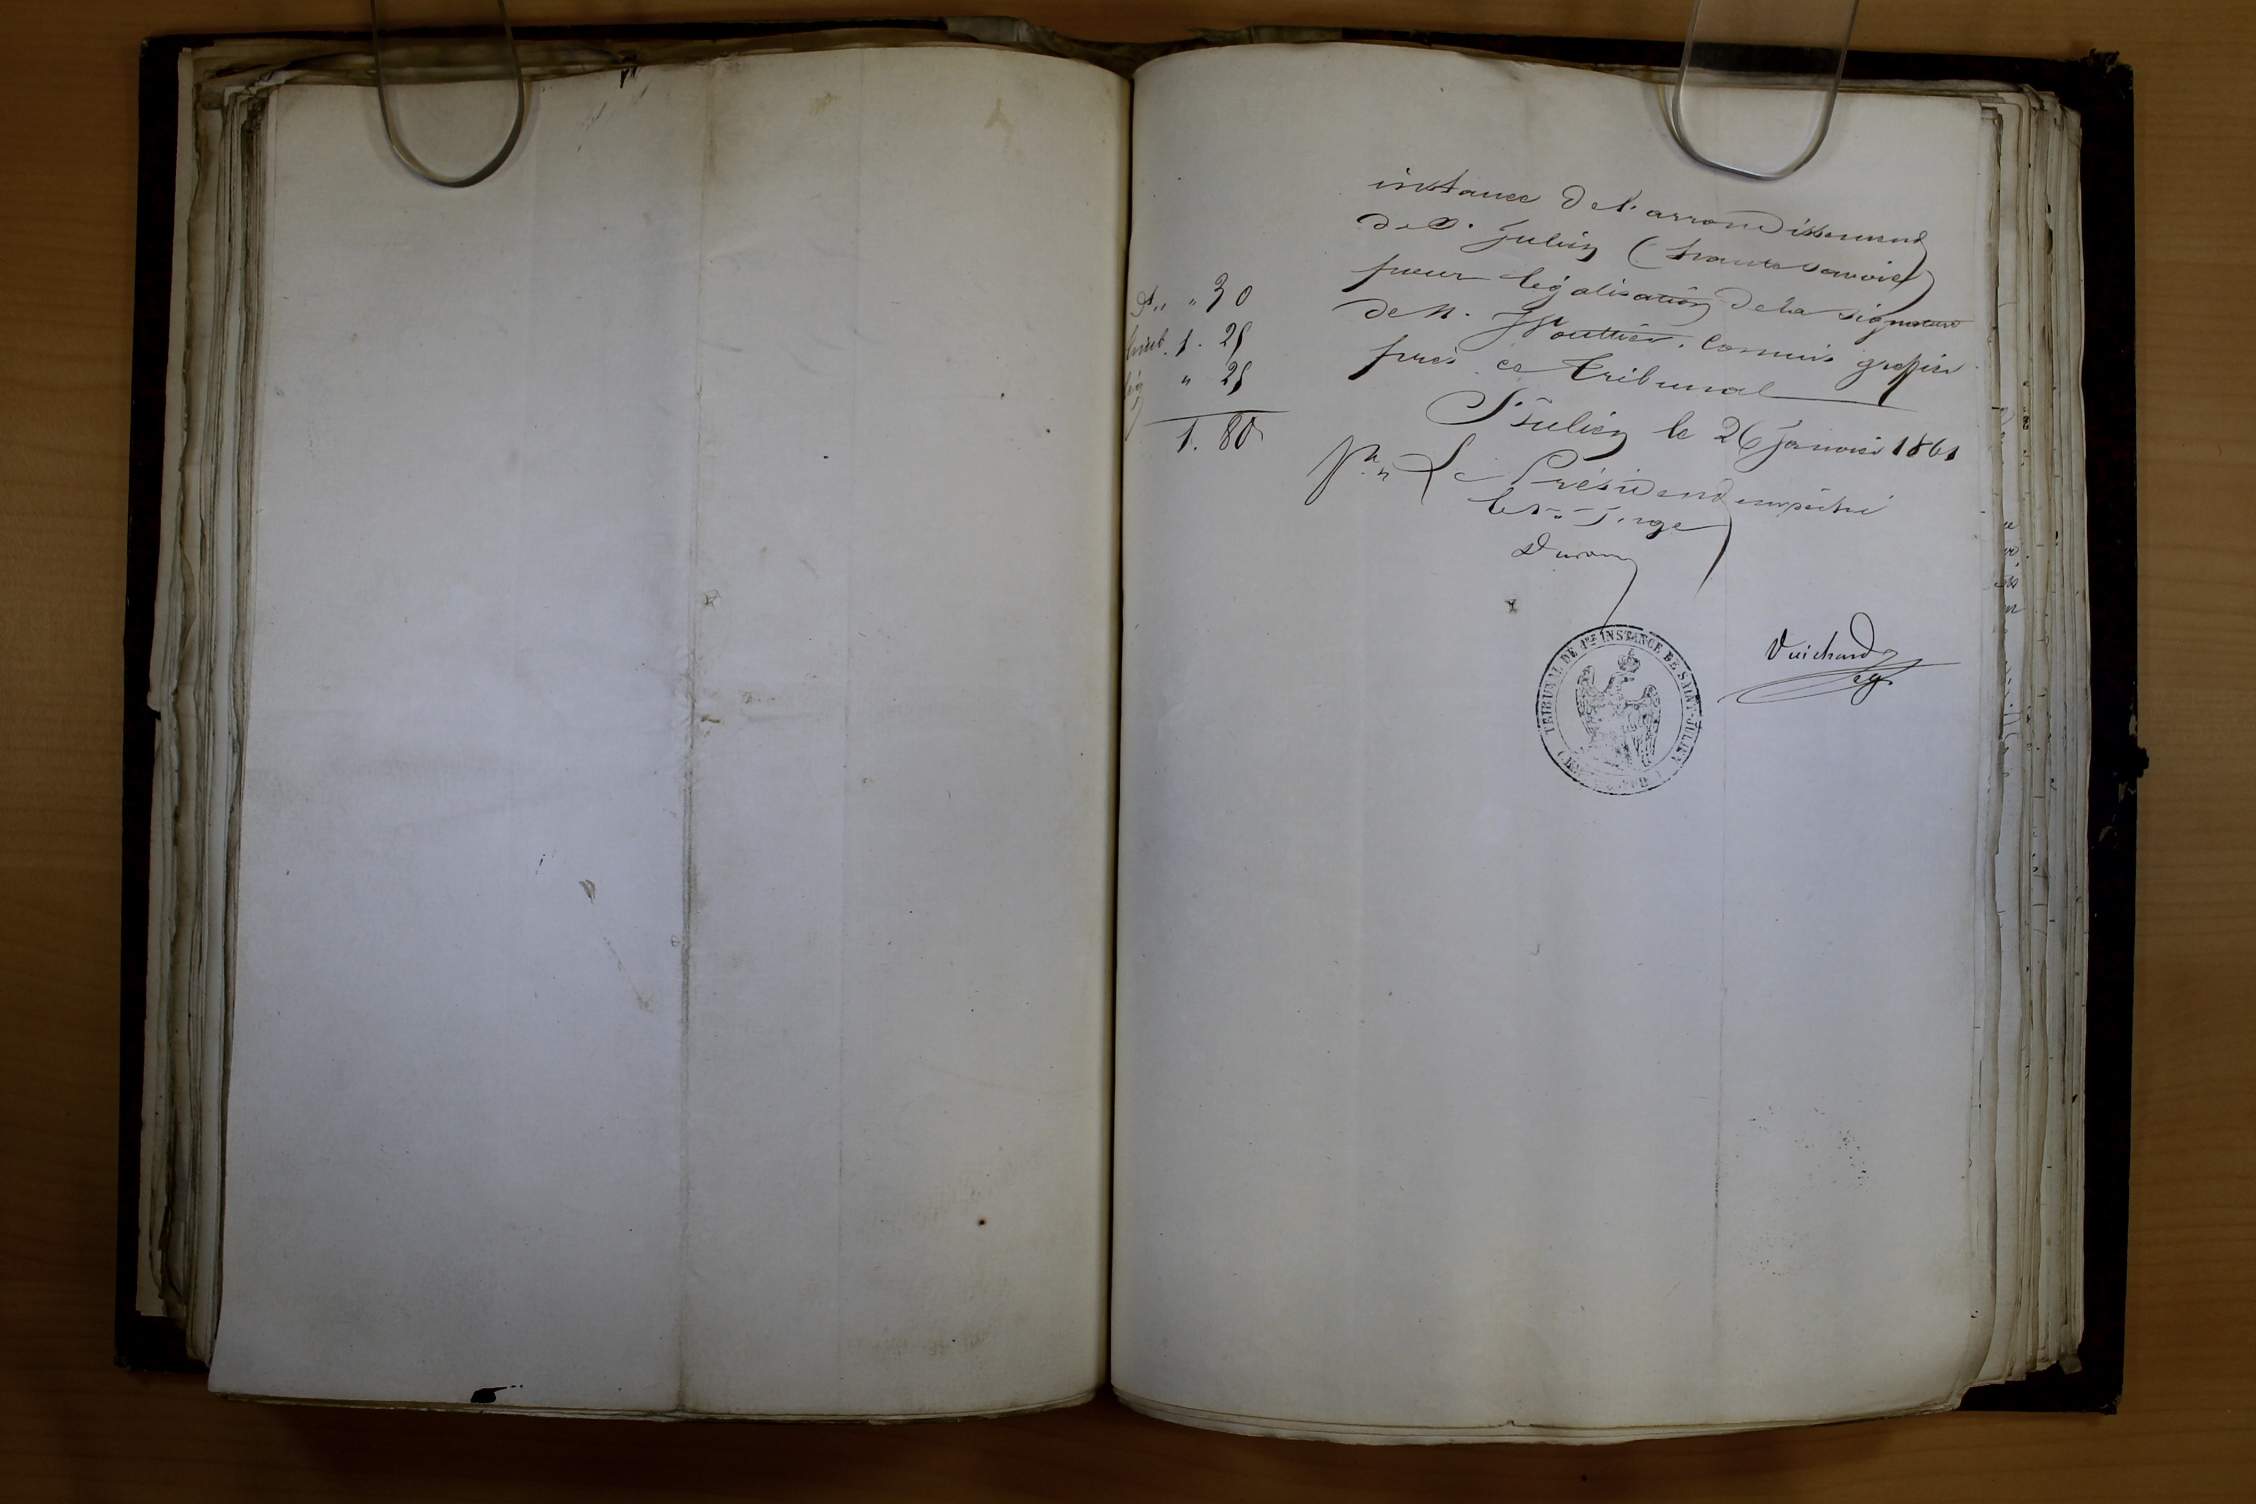 instance de l'arrondissement
de S. Julien (haute savoie)
pour légalisation de la signature
de M. commis greffier
près ce tribunal
St Julien le 26 Janvier 1861
Pr Le Président empêché
le Juge
Duvan
" 30
1. 25
" 25
1. 80
Vuichard
TRIBUNAL DE 1RE INSTANCE DE SAINT-JULIEN